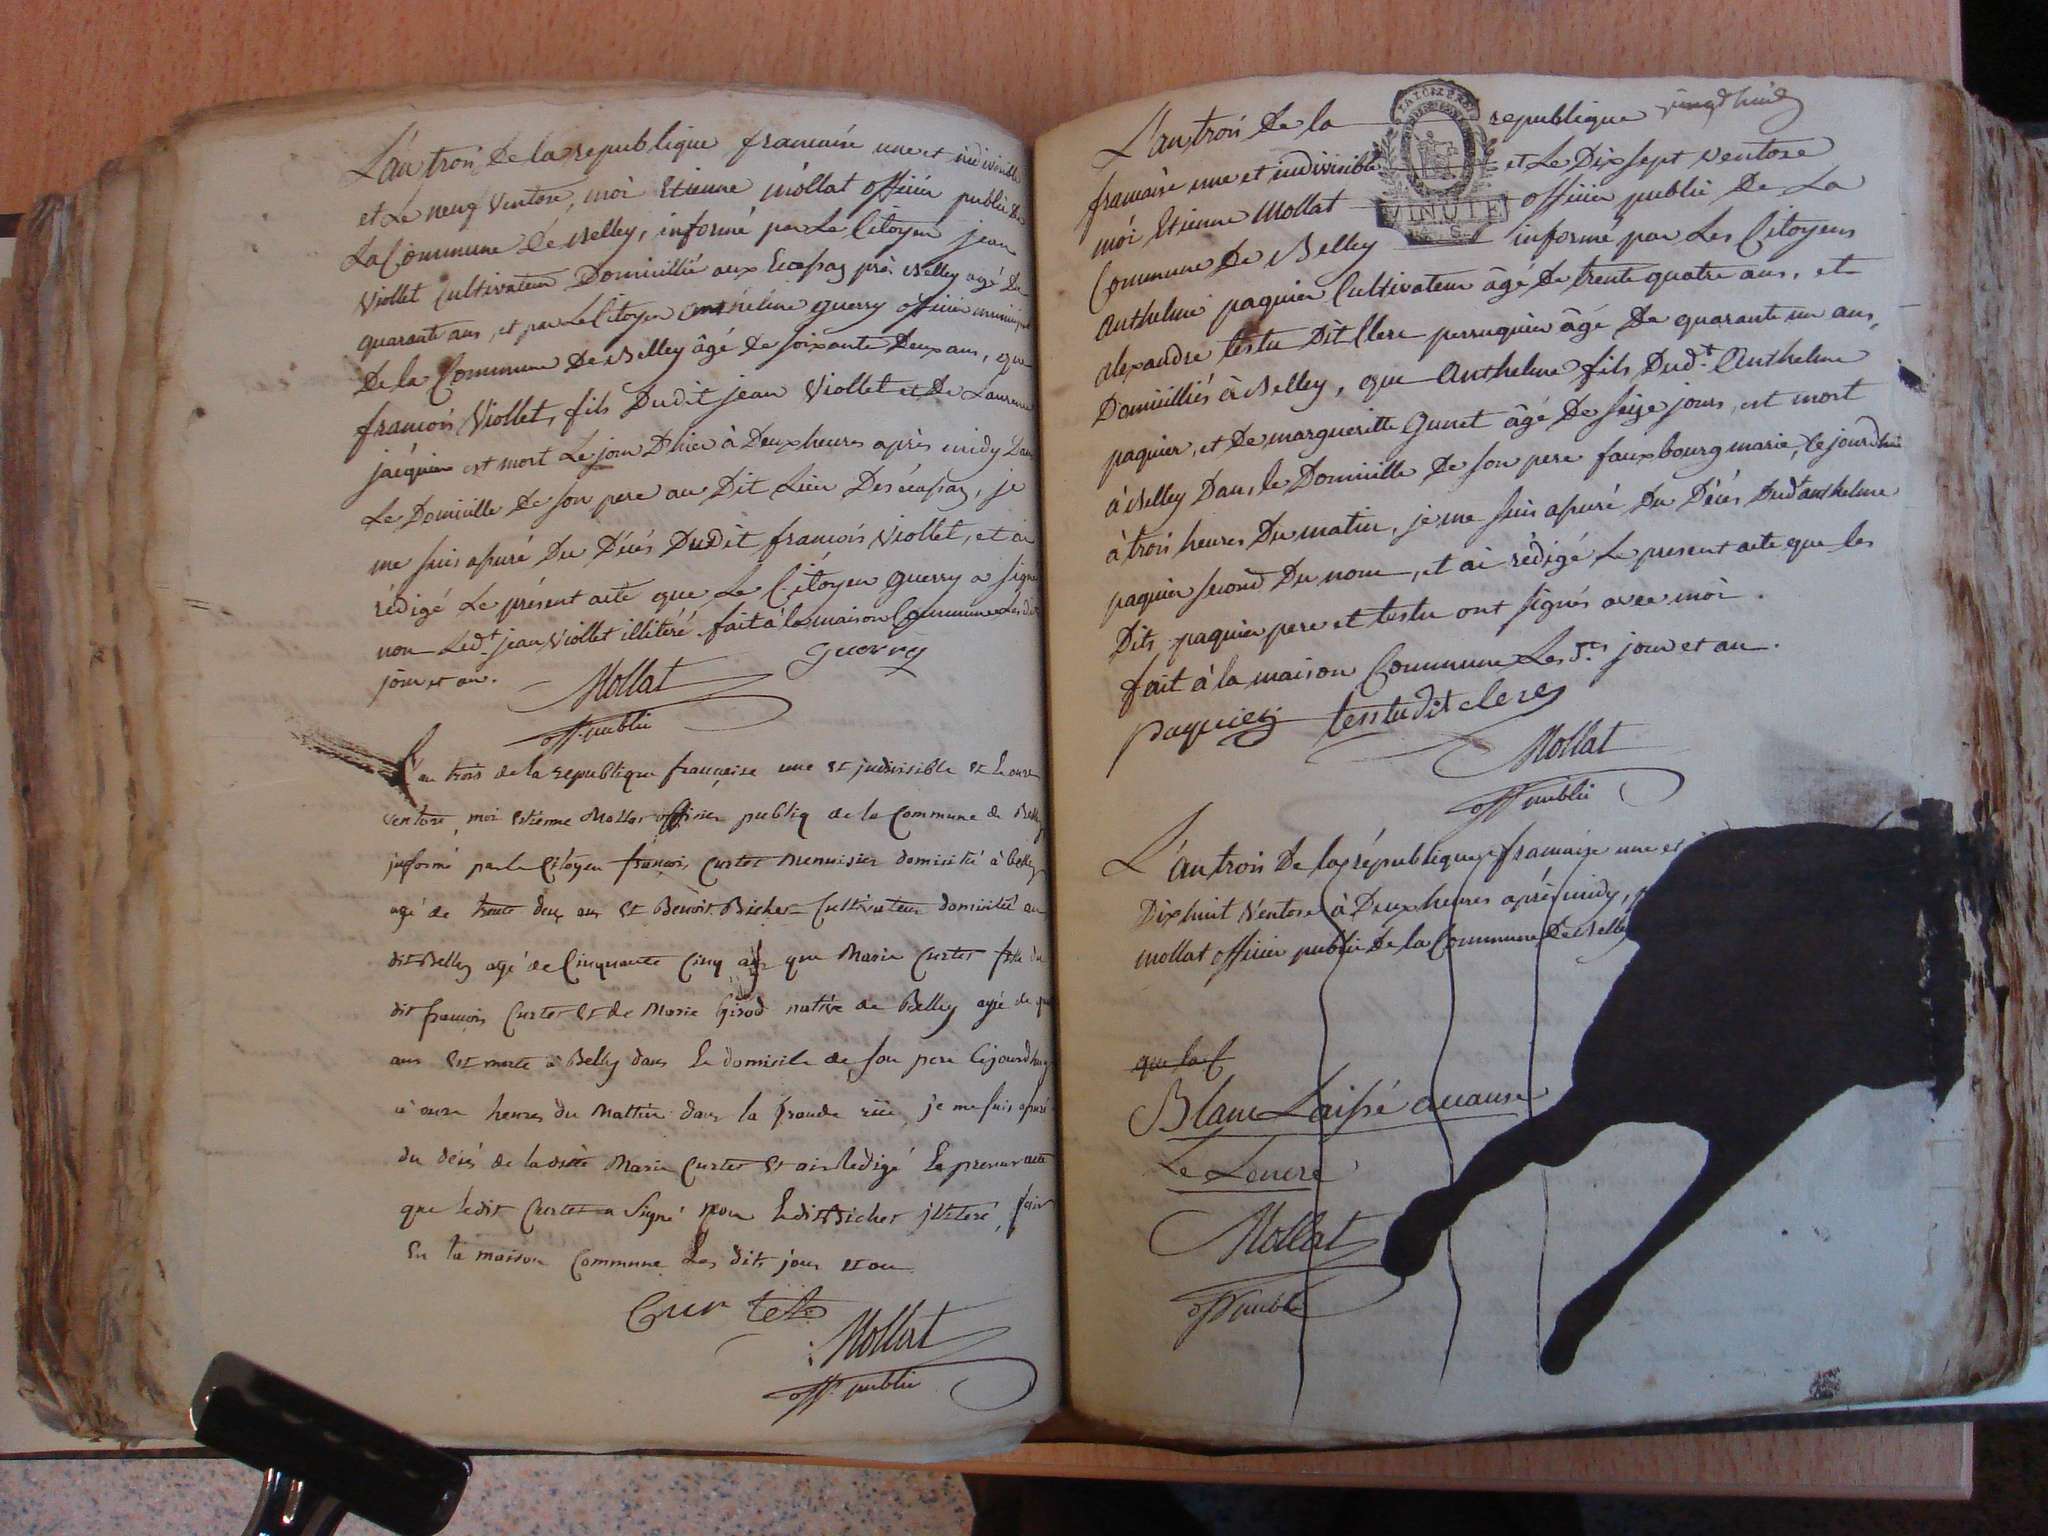 L'an trois De la republique francaise une et indivisible
et Le neuf Ventose, moi Etienne mollat officier public De
La Commune de Belley, informé par Le Citoyen jean
Viollet Cultivateur Domicillié aux Ecopaz près Belley agé De
quarante ans, et par Le Citoyen anthelme guerry officier municipal
De la Commune De Belley âgé de soixante Deux ans, que
francois Viollet, fils Dudit jean Viollet et De Laurence
jacquier est mort Le jour D'hier à Deux heures après midy Dans
Le Domicille De son pere au Dit Lieu Des écopaz, je
me suis assuré Du Décés Dudit francois Viollet, et ai
rédigé Le présent acte que Le Citoyen guerry a signé
non Led.t jean Viollet illiteré. fait à la maison Commune Les dits
jour et an.
Mollat guerry
off. public
L'an trois de la republique française une et indivisible et le onze
ventose, moi Etienne Mollat officier publiq de la Commune de Belley
informé par le Citoyen françois Curtet Menuisier domicilié à belley
agé de trente deux ans et Benoit Bichet Cultivateur domicilié au
dit Belley agé de Cinquante Cinq ans que Marie Curtet fille du
dit françois Curtet et de Marie Girod native de Belley agée de
ans est morte à Belley dans le domicile de son pere Cejourdhuy
à onze heures du Mattin dans la grande rüe, je me suis assuré
du décés de la ditte Marie Curtet et ai Redigé le present acte
que ledit Curtet a Signé non ledit Bichet illiteré, fait
En la maison Commune Les dits jour et an
Curtet
Mollat
off. public
L'an trois De la republique vingt huit
francaise une et indivisible et Le Dix sept ventose
MINUTE
moi Etienne Mollat officier public De La
Commune De Belley informé par Les Citoyens
anthelme paquier Cultivateur âgé De trente quatre ans, et
alexandre testu Dit Clerc perruquier âgé De quarante un ans,
Domicilliés à Belley, que Anthelme fils Dud.t Anthelme
paquier, et De margueritte âgé De seize jours, est mort
à Belley Dans le Domicille De son pere fauxbourg marie, Cejourdhui
à trois heures Du matin, je me suis assuré Du Décés Dud.t anthelme
paquier second Du nom, et ai rédigé Le present acte que les
Dits paquier pere et testu ont signés avec moi.
fait à la maison Commune Les d.ts jour et an.
paquier testu dit clerc
Mollat
off public
L'an trois De la république francaise une et
Dix huit Ventose à Deux heures après midy,
mollat officier public De la Commune De Belley
que la
Blanc Laissé a cause
De Lencre
Mollat
off public